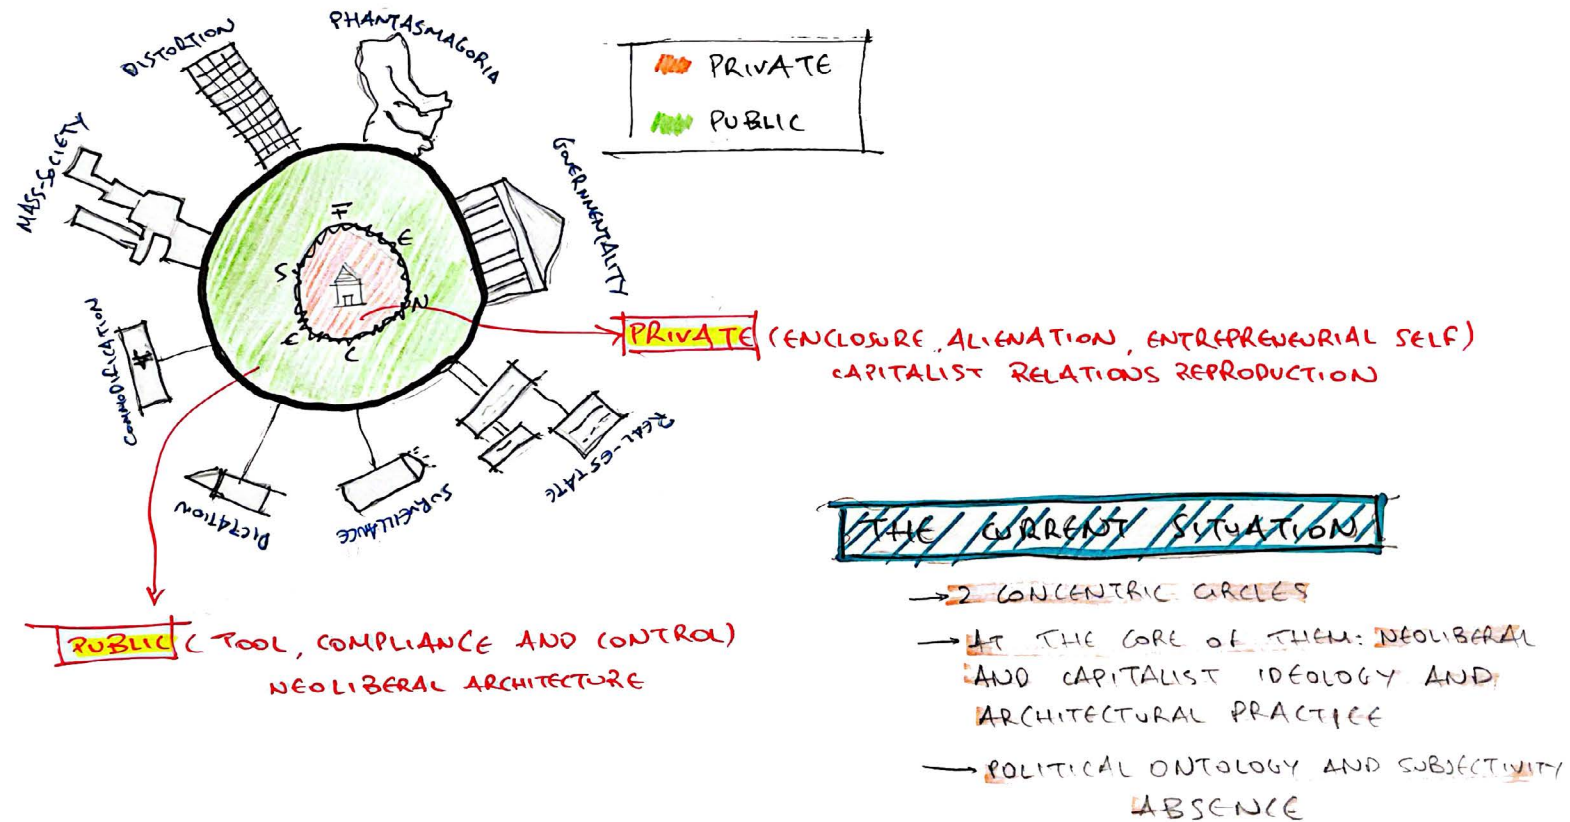 DISTORTION
PHANTASMAGORIA
MASS-SOCIETY
GOVERNMENTALITY
COMMODIFICATION
#
DICTATION
SURVEILLANCE
REAL-ESTATE
F
E
N
C
E
S
PRIVATE
PUBLIC
PRIVATE (ENCLOSURE, ALIENATION, ENTREPRENEURIAL SELF)
CAPITALIST RELATIONS REPRODUCTION
PUBLIC (TOOL, COMPLIANCE AND CONTROL)
NEOLIBERAL ARCHITECTURE
THE CURRENT SITUATION
→ 2 CONCENTRIC CIRCLES
→ AT THE CORE OF THEM: NEOLIBERAL
AND CAPITALIST IDEOLOGY AND
ARCHITECTURAL PRACTICE
→ POLITICAL ONTOLOGY AND SUBJECTIVITY
ABSENCE